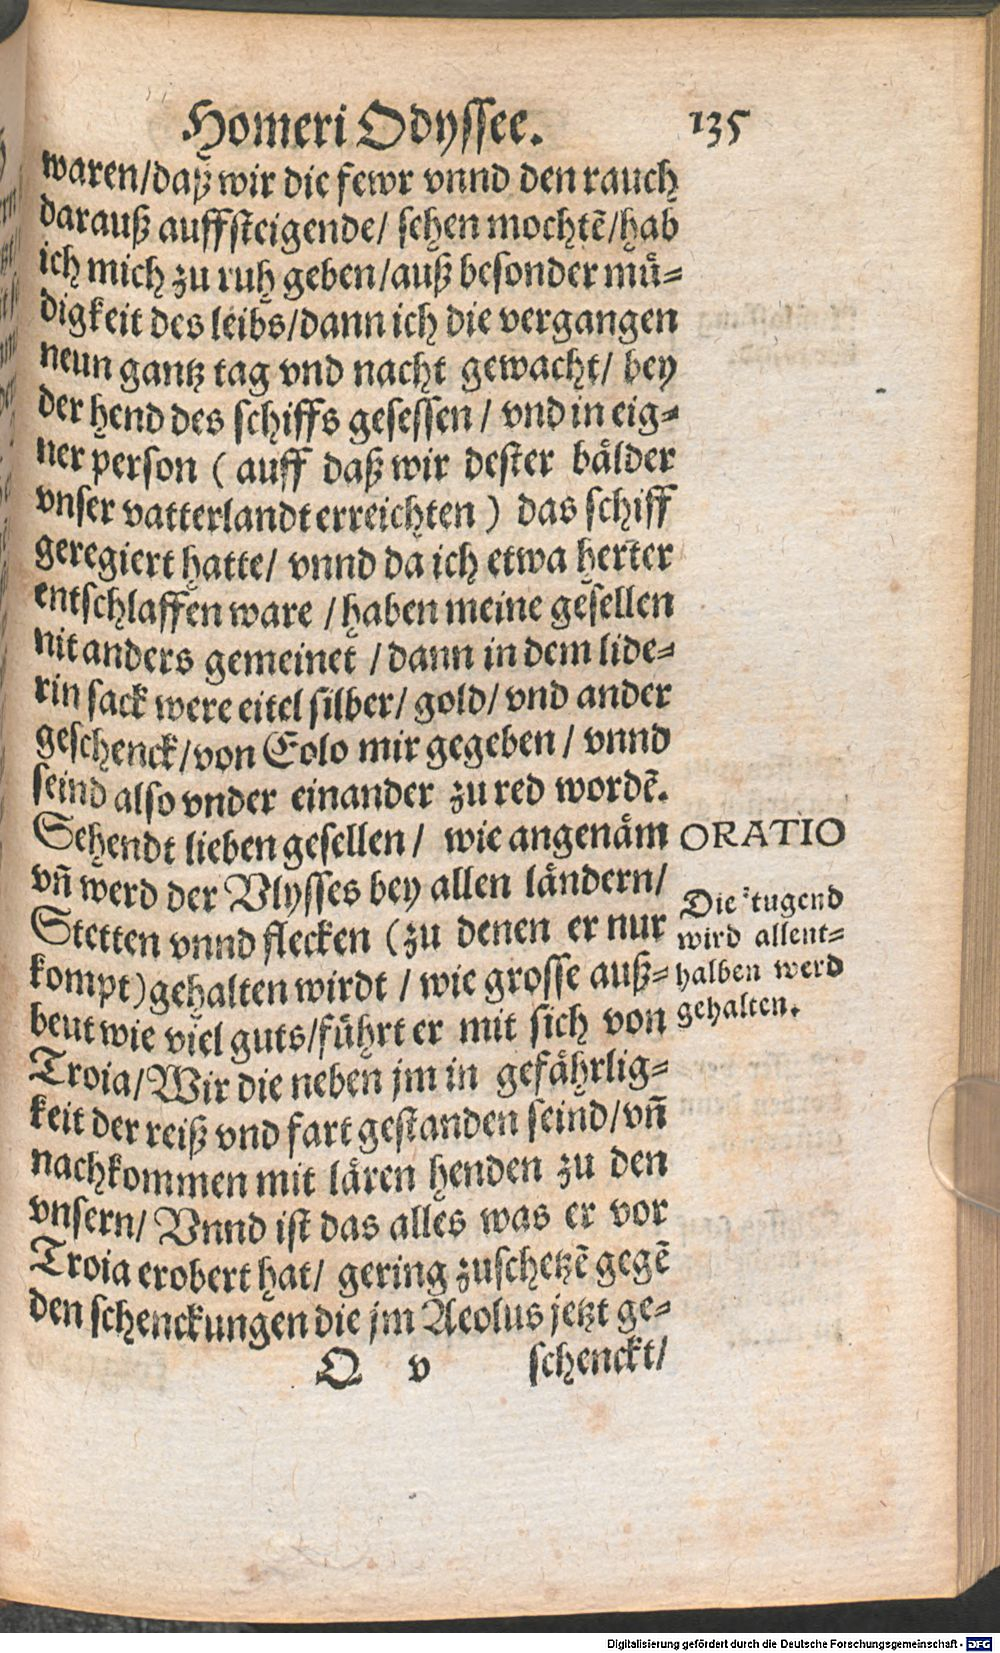 Homeri Odyssee. 135
waren/daß wir die fewr vnnd den rauch
darauß auffsteigende/ sehen mochtẽ/hab
ich mich zu ruh geben/auß besonder muͤ-
digkeit des leibs/dann ich die vergangen
neun gantz tag vnd nacht gewacht/ bey
der hend des schiffs gesessen / vnd in eig-
ner person ( auff daß wir dester baͤlder
vnser vatterlandt erreichten ) das schiff
geregiert hatte/ vnnd da ich etwa herter
entschlaffen ware / haben meine gesellen
nit anders gemeinet / dann in dem lide-
rin sack were eitel silber/ gold/ vnd ander
geschenck/von Eolo mir gegeben / vnnd
seind also vnder einander zu red wordẽ.
Sehendt lieben gesellen / wie angenaͤm
vñ werd der Vlysses bey allen laͤndern/
Stetten vnnd flecken (zu denen er nur
kompt)gehalten wirdt / wie grosse auß-
beut wie viel guts/fuͤhrt er mit sich von
Troia/Wir die neben jm in gefaͤhrlig-
keit der reiß vnd fart gestanden seind/vñ
nachkommen mit laͤren henden zu den
vnsern/ Vnnd ist das alles was er vor
Troia erobert hat/ gering zuschetzẽ gegẽ
den schenckungen die jm Aeolus jetzt ge-
Q v schenckt/
ORATIO
Die tugend
wird allent-
halben werd
gehalten.
Digitalisierung gefördert durch die Deutsche Forschungsgemeinschaft - DFG